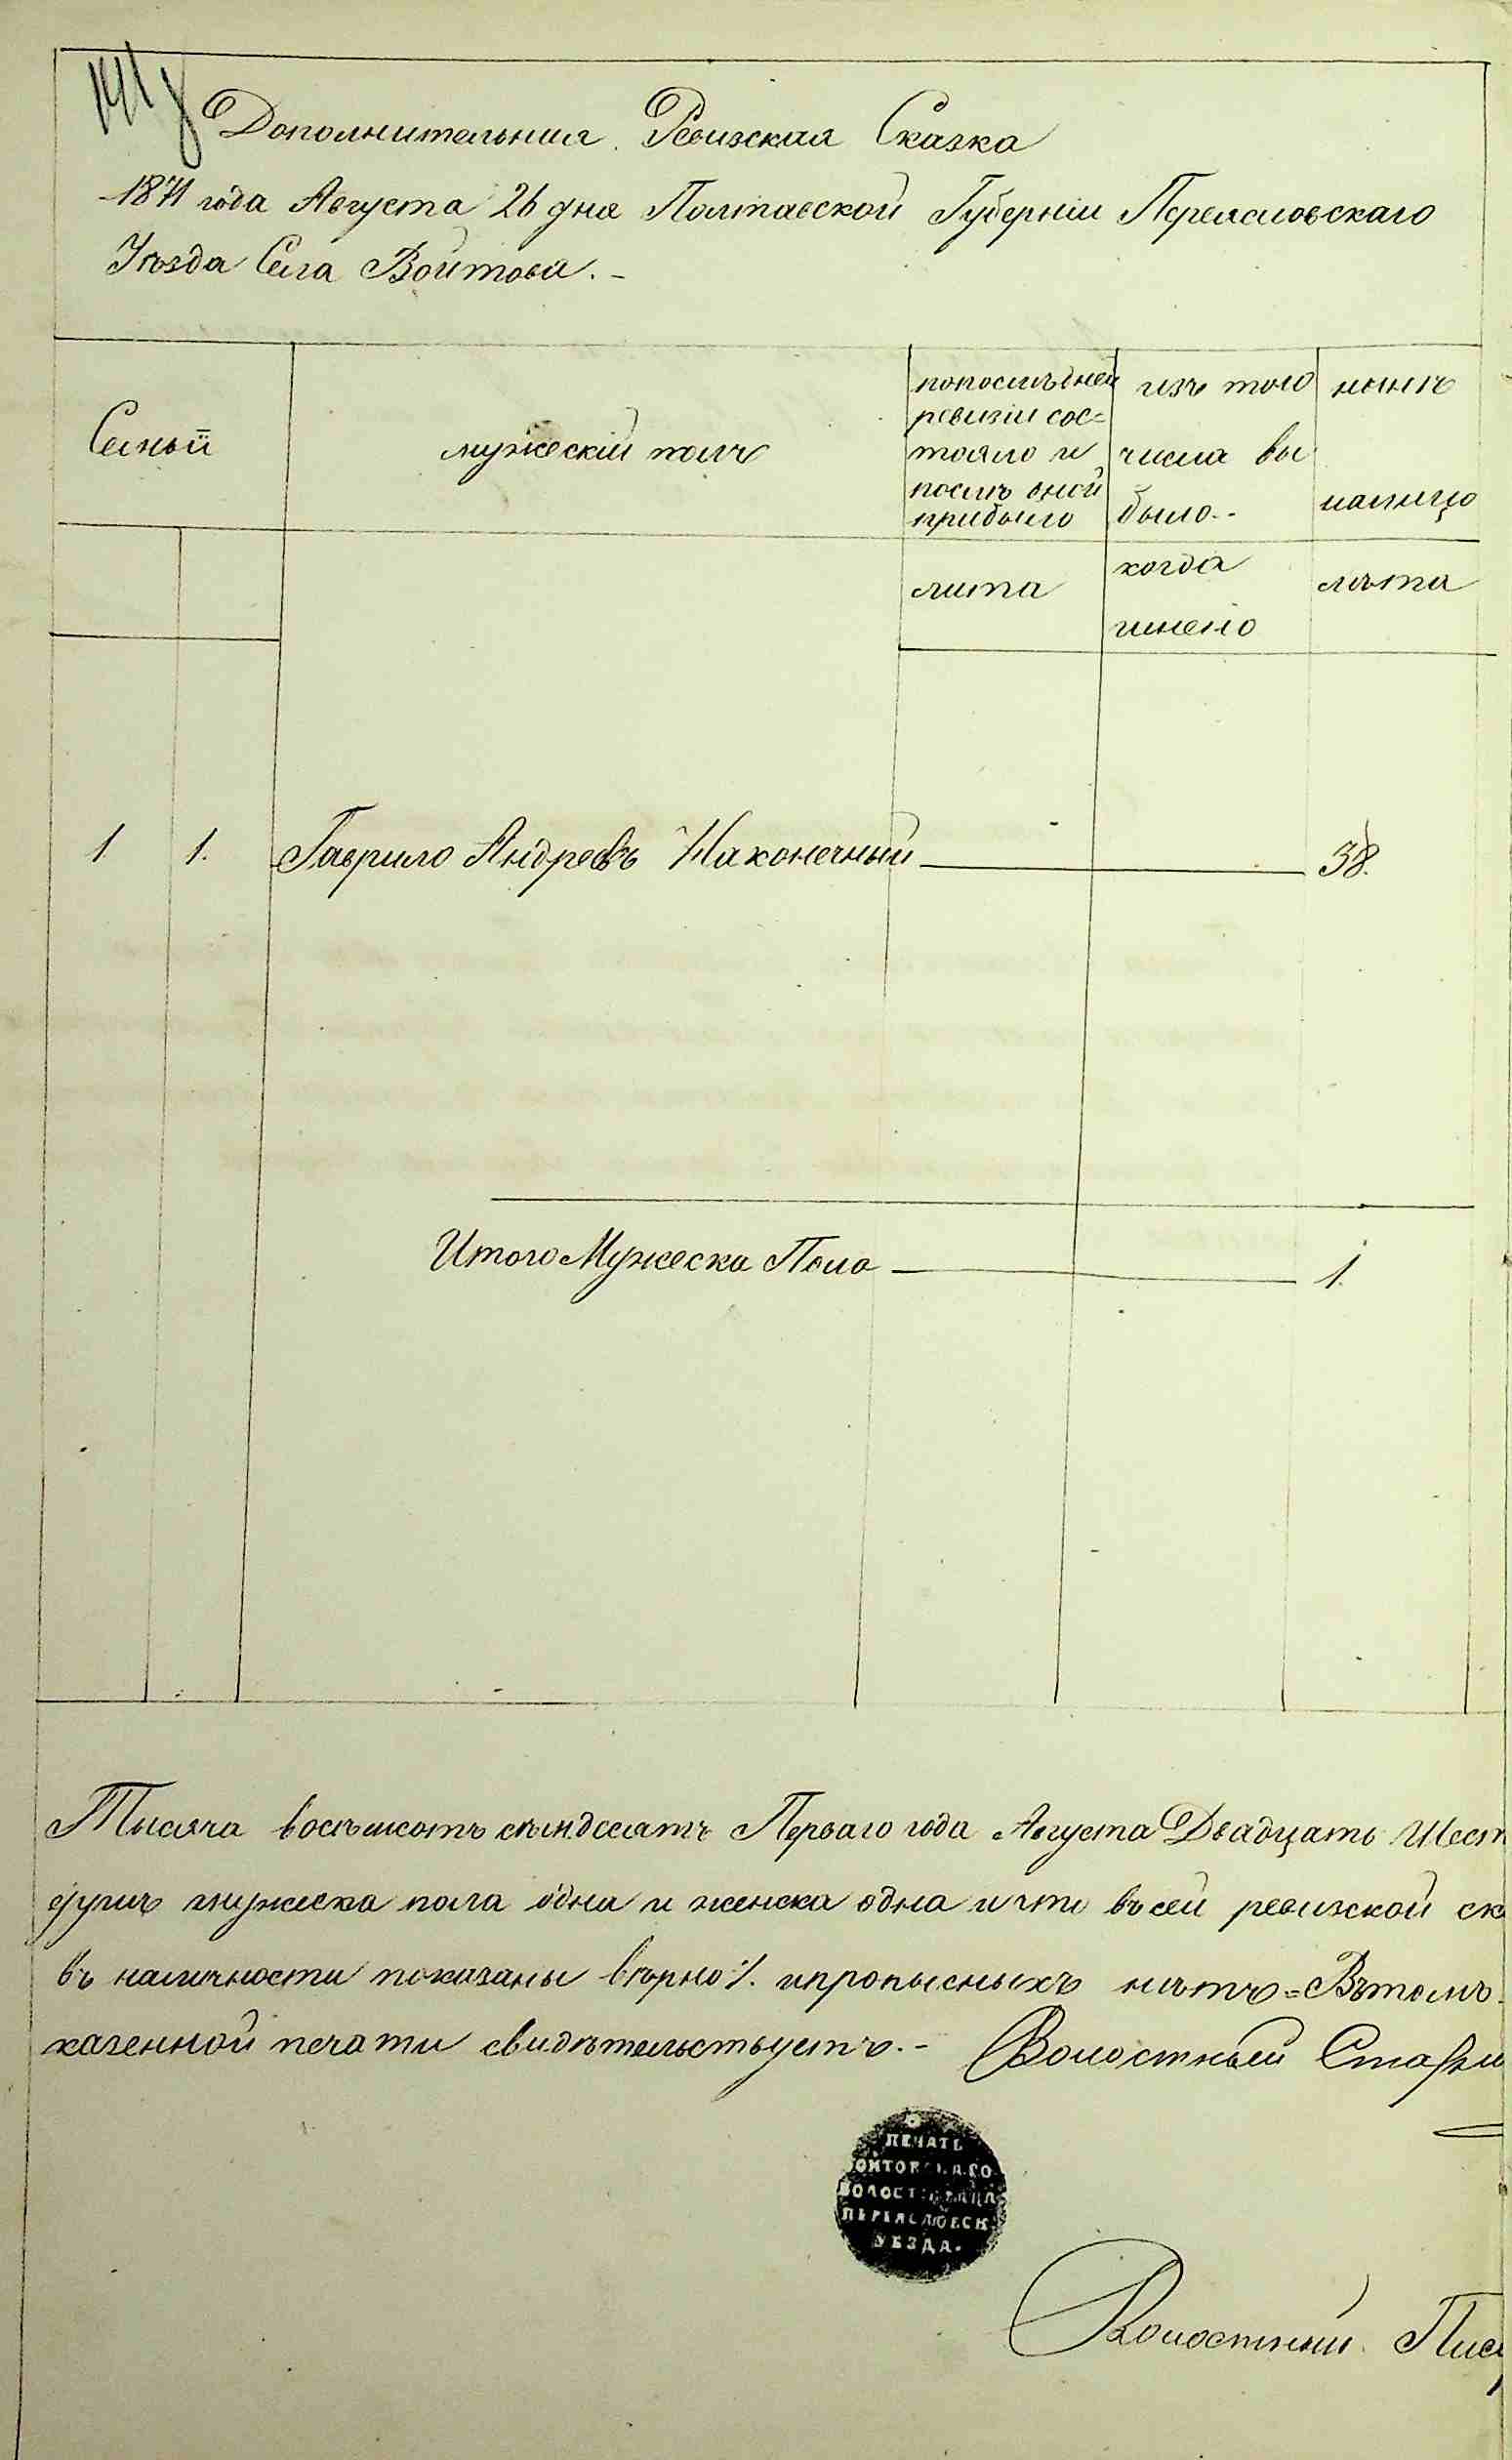 Дополнительная Ревизская Сказка
1871 года Августа 26 дня Полтавской Губерніи Переясловскаго
Уѣзда Села Войтова. -
Семьи
мужескій полъ
попослѣдней
ревизіи сос=
тояло и
послѣ оной
прибыло
изъ того
числа вы
было. -
нынѣ
налицо
лита
когда
имено
лѣта
1 1. Гаврило Андреевъ Наконечный 38.
Итого Мужеска Пола 1.
Тысяча восѣмсотъ сѣмдесятъ Перваго года Августа Двадцать Шест
душъ мужеска пола одна и женска одна и что въ сей ревизской ск
въ наличности показаны вѣрно и пропысныхъ нѣтъ = Вътомъ
казенной печати свидѣтельствуетъ. - Волостный Стар
ПЕЧАТЬ
ОЙТОВ
ВОЛОСТ
ПЕРЕЯСЛОВСК.
УѢЗДА.
Волостный Пис